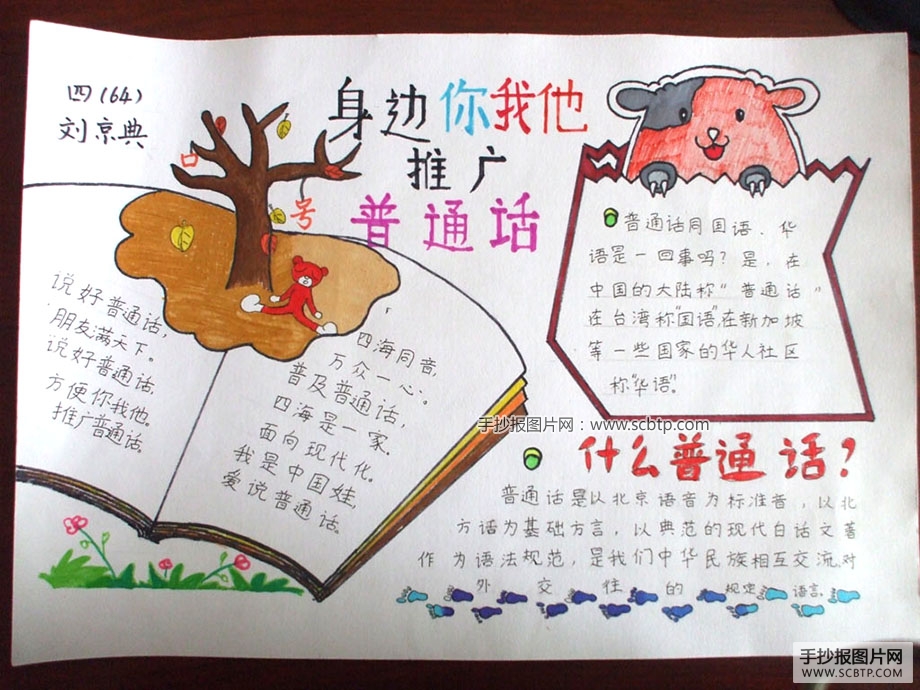 四(64)
刘京典
身边你我他
推广
普通话
口
号
说好普通话,
朋友满天下。
说好普通话,
方便你我他。
推广普通话。
四海同音,
万众一心。
普及普通话,
四海是一家。
面向现代化。
我是中国娃,
爱说普通话。
普通话同国语、华
语是一回事吗?是,在
中国的大陆称“普通话”
在台湾称“国语”,在新加坡
等一些国家的华人社区
称“华语”。
手抄报图片网:www.scbtp.com
什么普通话?
普通话是以北京语音为标准音,以北
方话为基础方言,以典范的现代白话文著
作为语法规范,是我们中华民族相互交流,对
外交往的规定语言。
手抄报图片网
WWW.SCBTP.COM